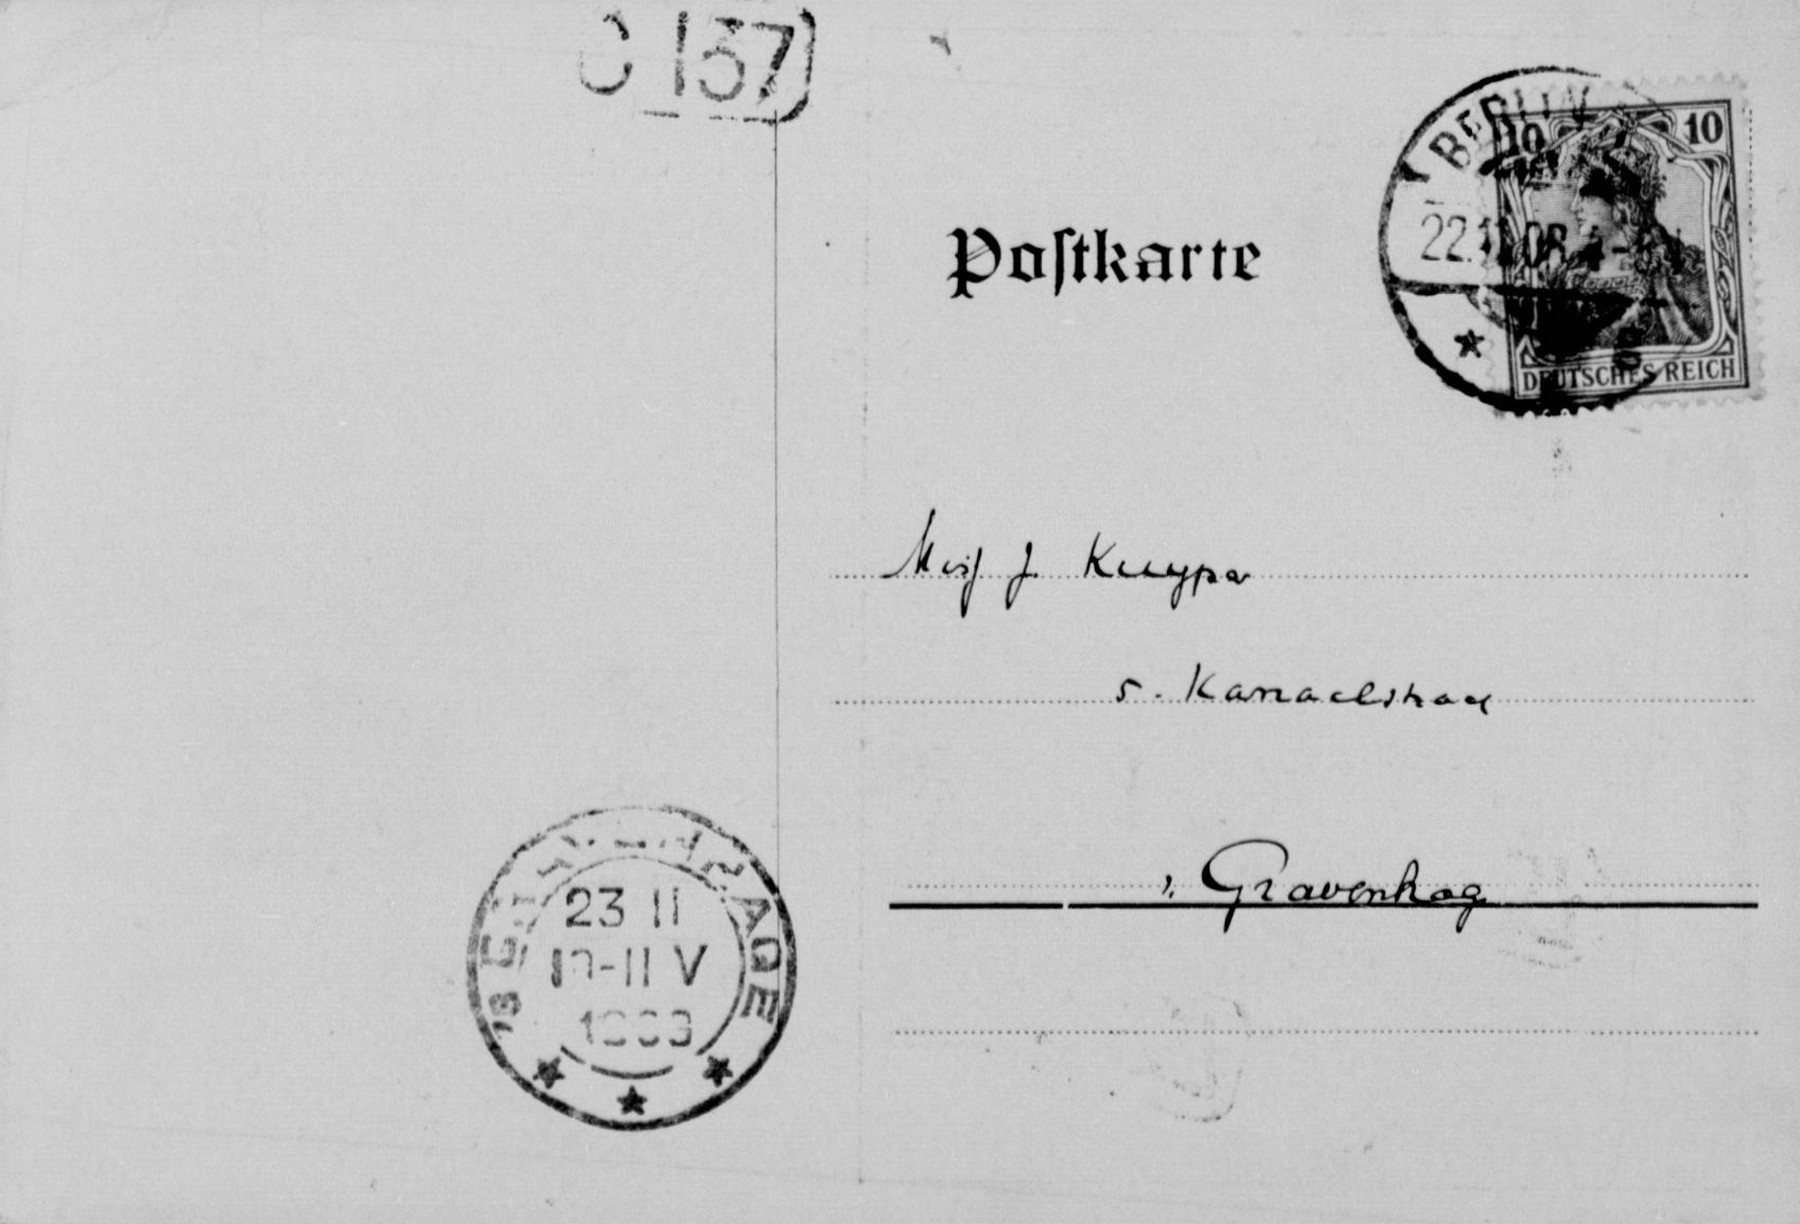 C 137
BERLIN
22.11.08. 4-5N
10 10
DEUTSCHES REICH
Postkarte
Mej J. Kuyper
5. Kanaalstraat
's Gravenhag
'S GRAVENHAGE
23 11
10-11 V
1908